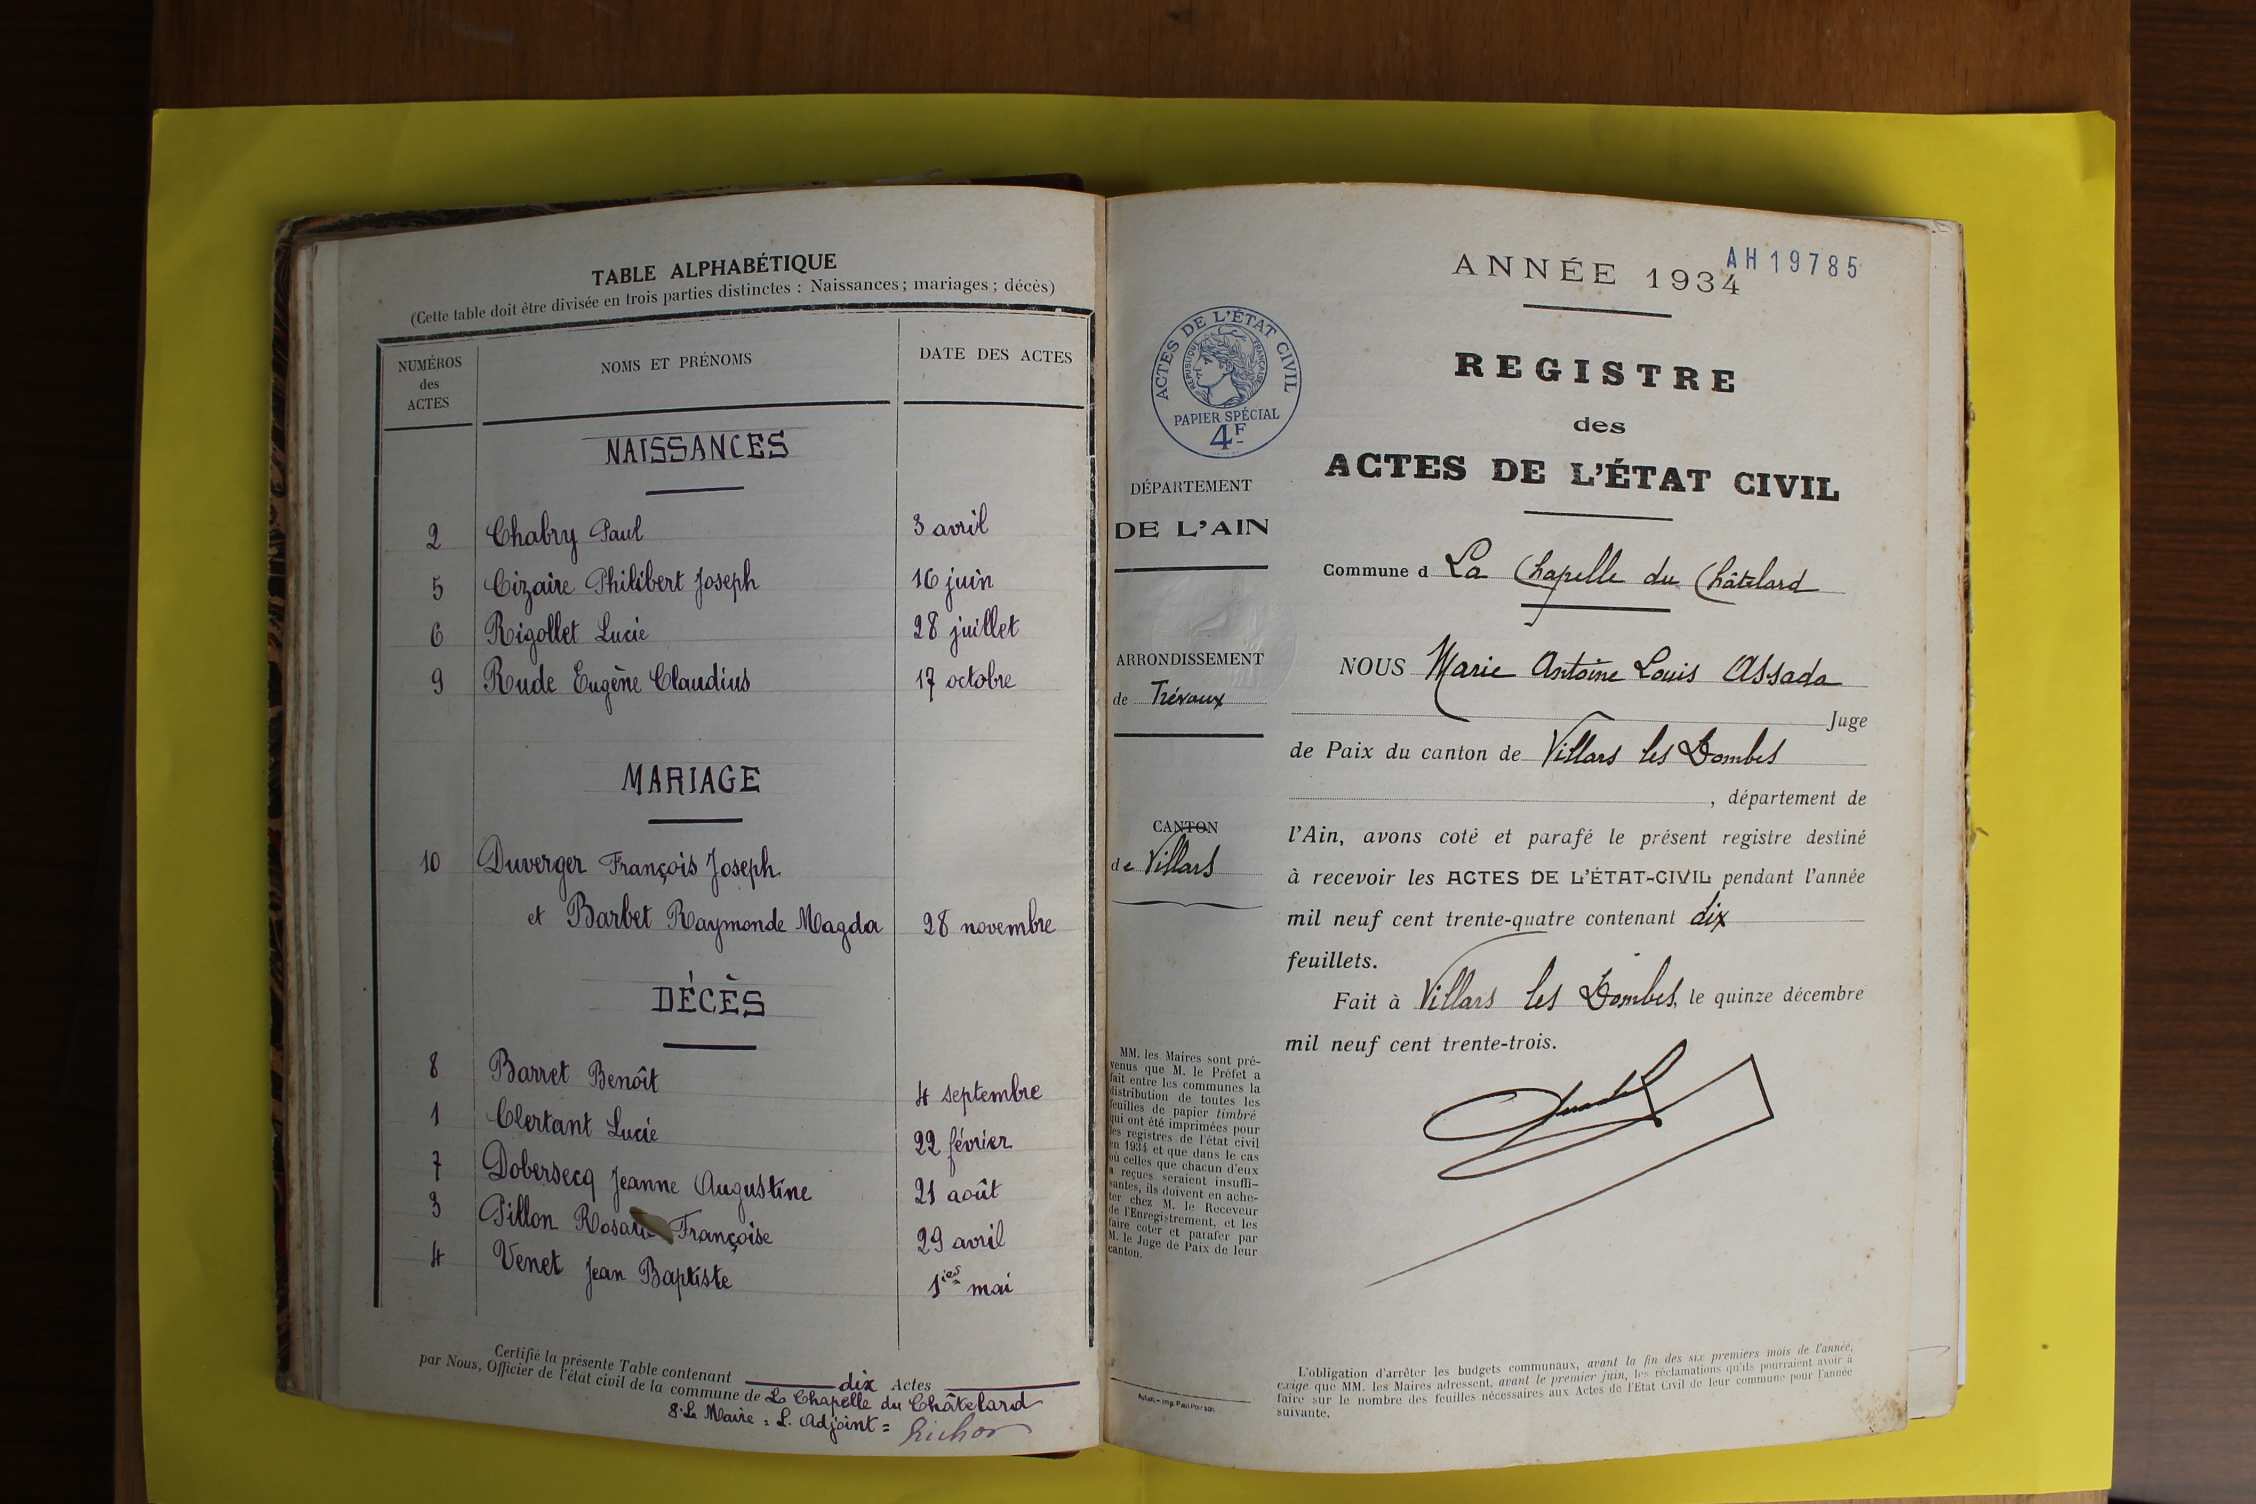 TABLE ALPHABÉTIQUE
(Cette table doit être divisée en trois parties distinctes : Naissances ; mariages ; décès)
NUMÉROS des ACTES NOMS ET PRÉNOMS DATE DES ACTES
NAISSANCES
2 Chabry Paul 3 avril
5 Cizaire Philibert Joseph 16 juin
6 Rigollet Lucie 28 juillet
9 Rude Eugène Claudius 17 octobre
MARIAGE
10 Duverger François Joseph
et Barbet Raymonde Magda 28 novembre
DÉCÈS
8 Barret Benoît 4 septembre
1 Clertant Lucie 22 février
7 Dobersecq Jeanne Augustine 21 août
3 Pillon Françoise 29 avril
4 Venet Jean Baptiste 1ier mai
Certifié la présente Table contenant dix Actes
par Nous, Officier de l'état civil de la commune de La Chapelle du Châtelard
Le Maire : L. Adjoint =
AH19785
ANNÉE 1934
ACTES DE L'ÉTAT CIVIL
RÉPUBLIQUE FRANÇAISE
PAPIER SPÉCIAL
4F
REGISTRE
des
ACTES DE L'ÉTAT CIVIL
DÉPARTEMENT
DE L'AIN
ARRONDISSEMENT
de Trévoux
CANTON
de Villars
MM. les Maires sont pré-
venus que M. le Préfet a
fait entre les communes la
distribution de toutes les
feuilles de papier timbré
qui ont été imprimées pour
les registres de l'état civil
en 1934 et que dans le cas
où celles que chacun d'eux
a reçues seraient insuffi-
santes, ils doivent en ache-
ter chez M. le Receveur
de l'Enregistrement, et les
faire coter et parafer par
M. le Juge de Paix de leur
canton.
Commune d La Chapelle du Châtelard
NOUS Marie Antoine Louis Assada
Juge
de Paix du canton de Villars les Dombes
, département de
l'Ain, avons coté et parafé le présent registre destiné
à recevoir les ACTES DE L'ÉTAT-CIVIL pendant l'année
mil neuf cent trente-quatre contenant dix
feuillets.
Fait à Villars les Dombes, le quinze décembre
mil neuf cent trente-trois.
L'obligation d'arrêter les budgets communaux, avant la fin des six premiers mois de l'année,
exige que MM. les Maires adressent, avant le premier juin, les réclamations qu'ils pourraient avoir à
faire sur le nombre des feuilles nécessaires aux Actes de l'État Civil de leur commune pour l'année
suivante.